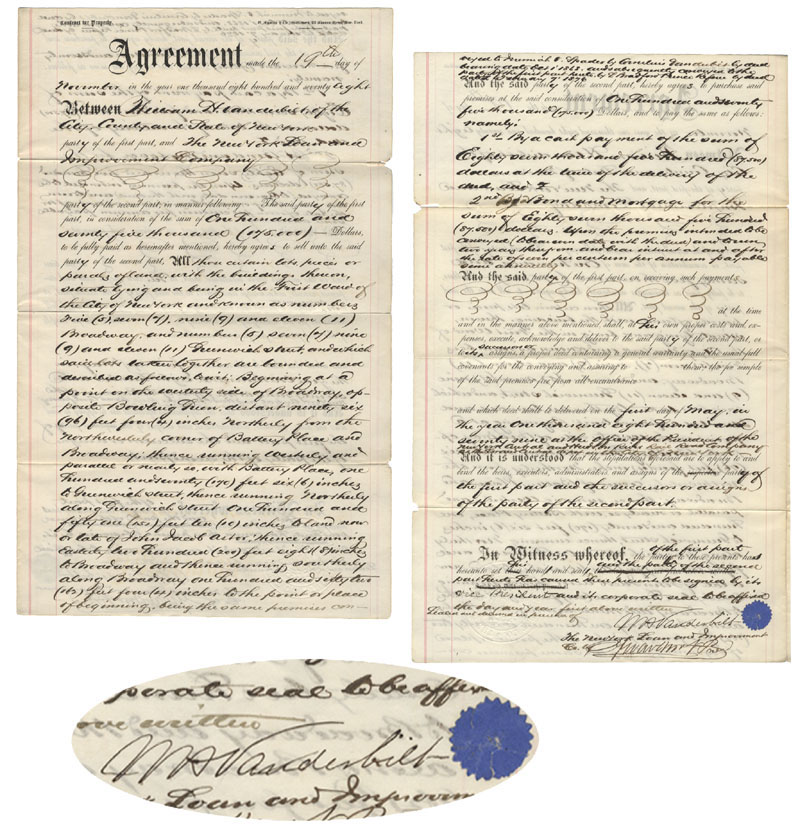 Contract for Property.
Agreement made the 19th day of
November in the year one thousand eight hundred and seventy eight
Between William H. Vanderbilt of the
City, County and State of New York
party of the first part, and The New York Loan and
Improvement Company
party of the second part, in manner following: The said party of the first
part, in consideration of the sum of One Hundred and
seventy five thousand (175,000) Dollars,
to be fully paid as hereinafter mentioned, hereby agrees to sell unto the said
party of the second part, All those certain lots pieces or
parcels of land, with the buildings thereon,
situate lying and being in the First Ward of
the City of New York and known as numbers
Five (5), seven (7), nine (9) and eleven (11)
Broadway, and number (5) seven (7) nine
(9) and eleven (11) Greenwich street, and which
said lots taken together are bounded and
described as follows, to wit: Beginning at a
point on the westerly side of Broadway, op-
posite Bowling Green, distant ninety six
(96) feet four (4) inches Northerly from the
Northwesterly corner of Battery Place and
Broadway; thence running Westerly and
parallel or nearly so, with Battery Place, one
Hundred and seventy (170) feet six (6) inches
to Greenwich street, thence running Northerly
along Greenwich street One Hundred and
fifty one (151) feet ten (10) inches to land now
or late of John Jacob Astor, thence running
easterly two Hundred (200) feet eight (8) inches
to Broadway and thence running southerly
along Broadway one Hundred and sixty two
(162) feet four (4) inches to the point or place
of beginning, being the same premises con-
veyed to by Caroline Vanderbilt by deed
bearing date and subsequently conveyed to the
party of the first part by
dated February
And the said party of the second part, hereby agrees to purchase said
premises at the said consideration of One Hundred and seventy
five thousand (175,000) Dollars, and to pay the same as follows:
namely:
1st By a cash payment of the sum of
Eighty seven thousand five Hundred (87,500)
dollars at the time of the delivery of the
deed, and
2nd Bond and Mortgage for the
sum of Eighty seven thousand five Hundred
(87,500) dollars. Upon the premises intended to be
conveyed (to bear even date with the deed) and to run
two years therefrom and bear interest at and after
the rate of seven per centum per annum payable
semi annually
And the said party of the first part, on receiving such payments
at the time
and in the manner above mentioned, shall, at his own proper costs and ex-
penses, execute, acknowledge and deliver to the said party of the second part, or
to its successors assigns, a proper deed containing a general warranty and the usual full
covenants for the conveying and assuring to them the fee simple
of the said premises free from all encumbrance
and which deed shall be delivered on the first day of May, in
the year One thousand eight Hundred and
seventy nine at the office of the President of the
New York Central and Hudson River Rail Road Company
And it is understood that the stipulations aforesaid are to apply to and
bind the heirs, executors, administrators and assigns of the party of
the first part and the successors or assigns
of the party of the second part.
In Witness whereof, the party of the first part to these presents has
hereunto set his hand and seal and the party of the second
part has caused these presents to be signed by its
vice President and its corporate seal to be affixed
the day and year first above written
Sealed and delivered in presence of
W H Vanderbilt
The New York Loan and Improvement
Co. by
porate seal to be affix
ove written
W H Vanderbilt
Loan and Improvem